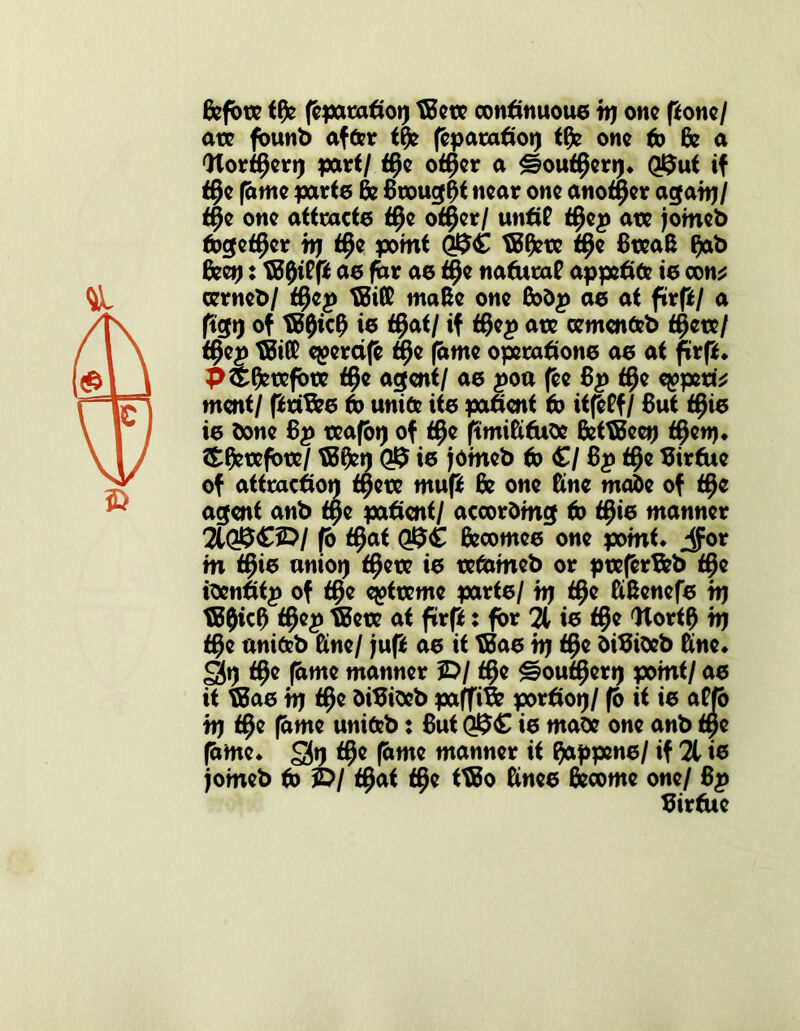 before the separation were continuous in one stone/
are found after the separation the one to be a
Northern part/ the other a Southern. But if
the same parts be brought near one another again/
the one attracts the other/ until they are joined
together in the point BC where the break had
been: whilst as far as the natural appetite is con⸗
cerned/ they will make one body as at first/ a
sign of which is that/ if they are cemented there/
they will exercise the same operations as at first.
Therefore the agent/ as you see by the experi⸗
ment/ strives to unite its patient to itself/ but this
is done by reason of the similitude between them.
Therefore/ when B is joined to C/ by the virtue
of attraction there must be one line made of the
agent and the patient/ according to this manner
ABCD/ so that BC becomes one point. For
in this union there is retained or preserved the
identity of the extreme parts/ in the likeness in
which they were at first: for A is the North in
the united line/ just as it was in the divided line.
In the same manner D/ the Southern point/ as
it was in the divided passive portion/ so it is also
in the same united: but BC is made one and the
same. In the same manner it happens/ if A is
joined to D/ that the two lines become one/ by
virtue
A
B
C
D